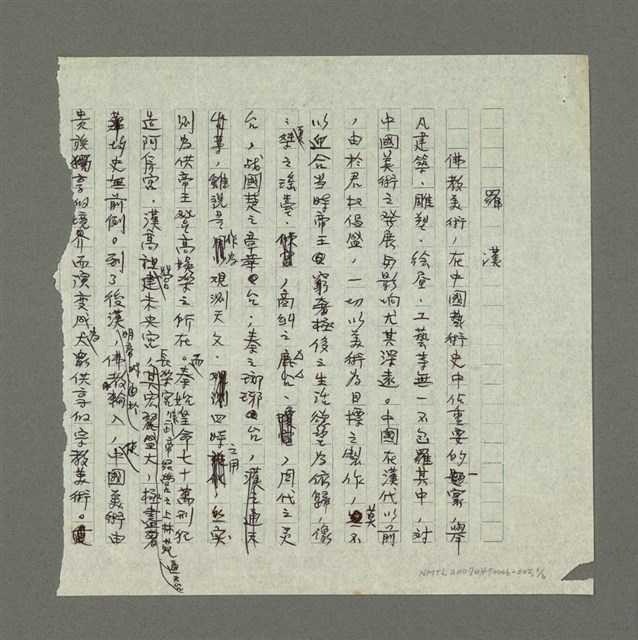 羅漢
佛教美術，在中國藝術史中佔重要的一頁，舉
凡建築、雕塑、繪畫、工藝等無一不包羅其中，對
中國美術之發展與影响尤其深遠。中國在漢代以前
，由於君权倡盛，一切以美術為目標之製作，莫不
以迎合当時帝王窮奢極侈之生活欲望為依歸，像夏
桀之瑤臺，商紂之鹿台，周代之灵
台，战國楚之章華台，秦之琊瑯台，漢之通天
台等，雖說是作為观測天文、四時之用，然实
則为供帝王登高娛樂之所在。而秦始皇命七十萬刑犯
造阿房宮，漢高祖營建未央宮、長樂宮
其宏麗盛大，極盡奢
華，史無前例。到了後漢明帝時由於佛教輸入，使中國美術由
貴族獨享的境界而演变成為大眾供享的宗教美術。
NMTL20070470006-002,1/6